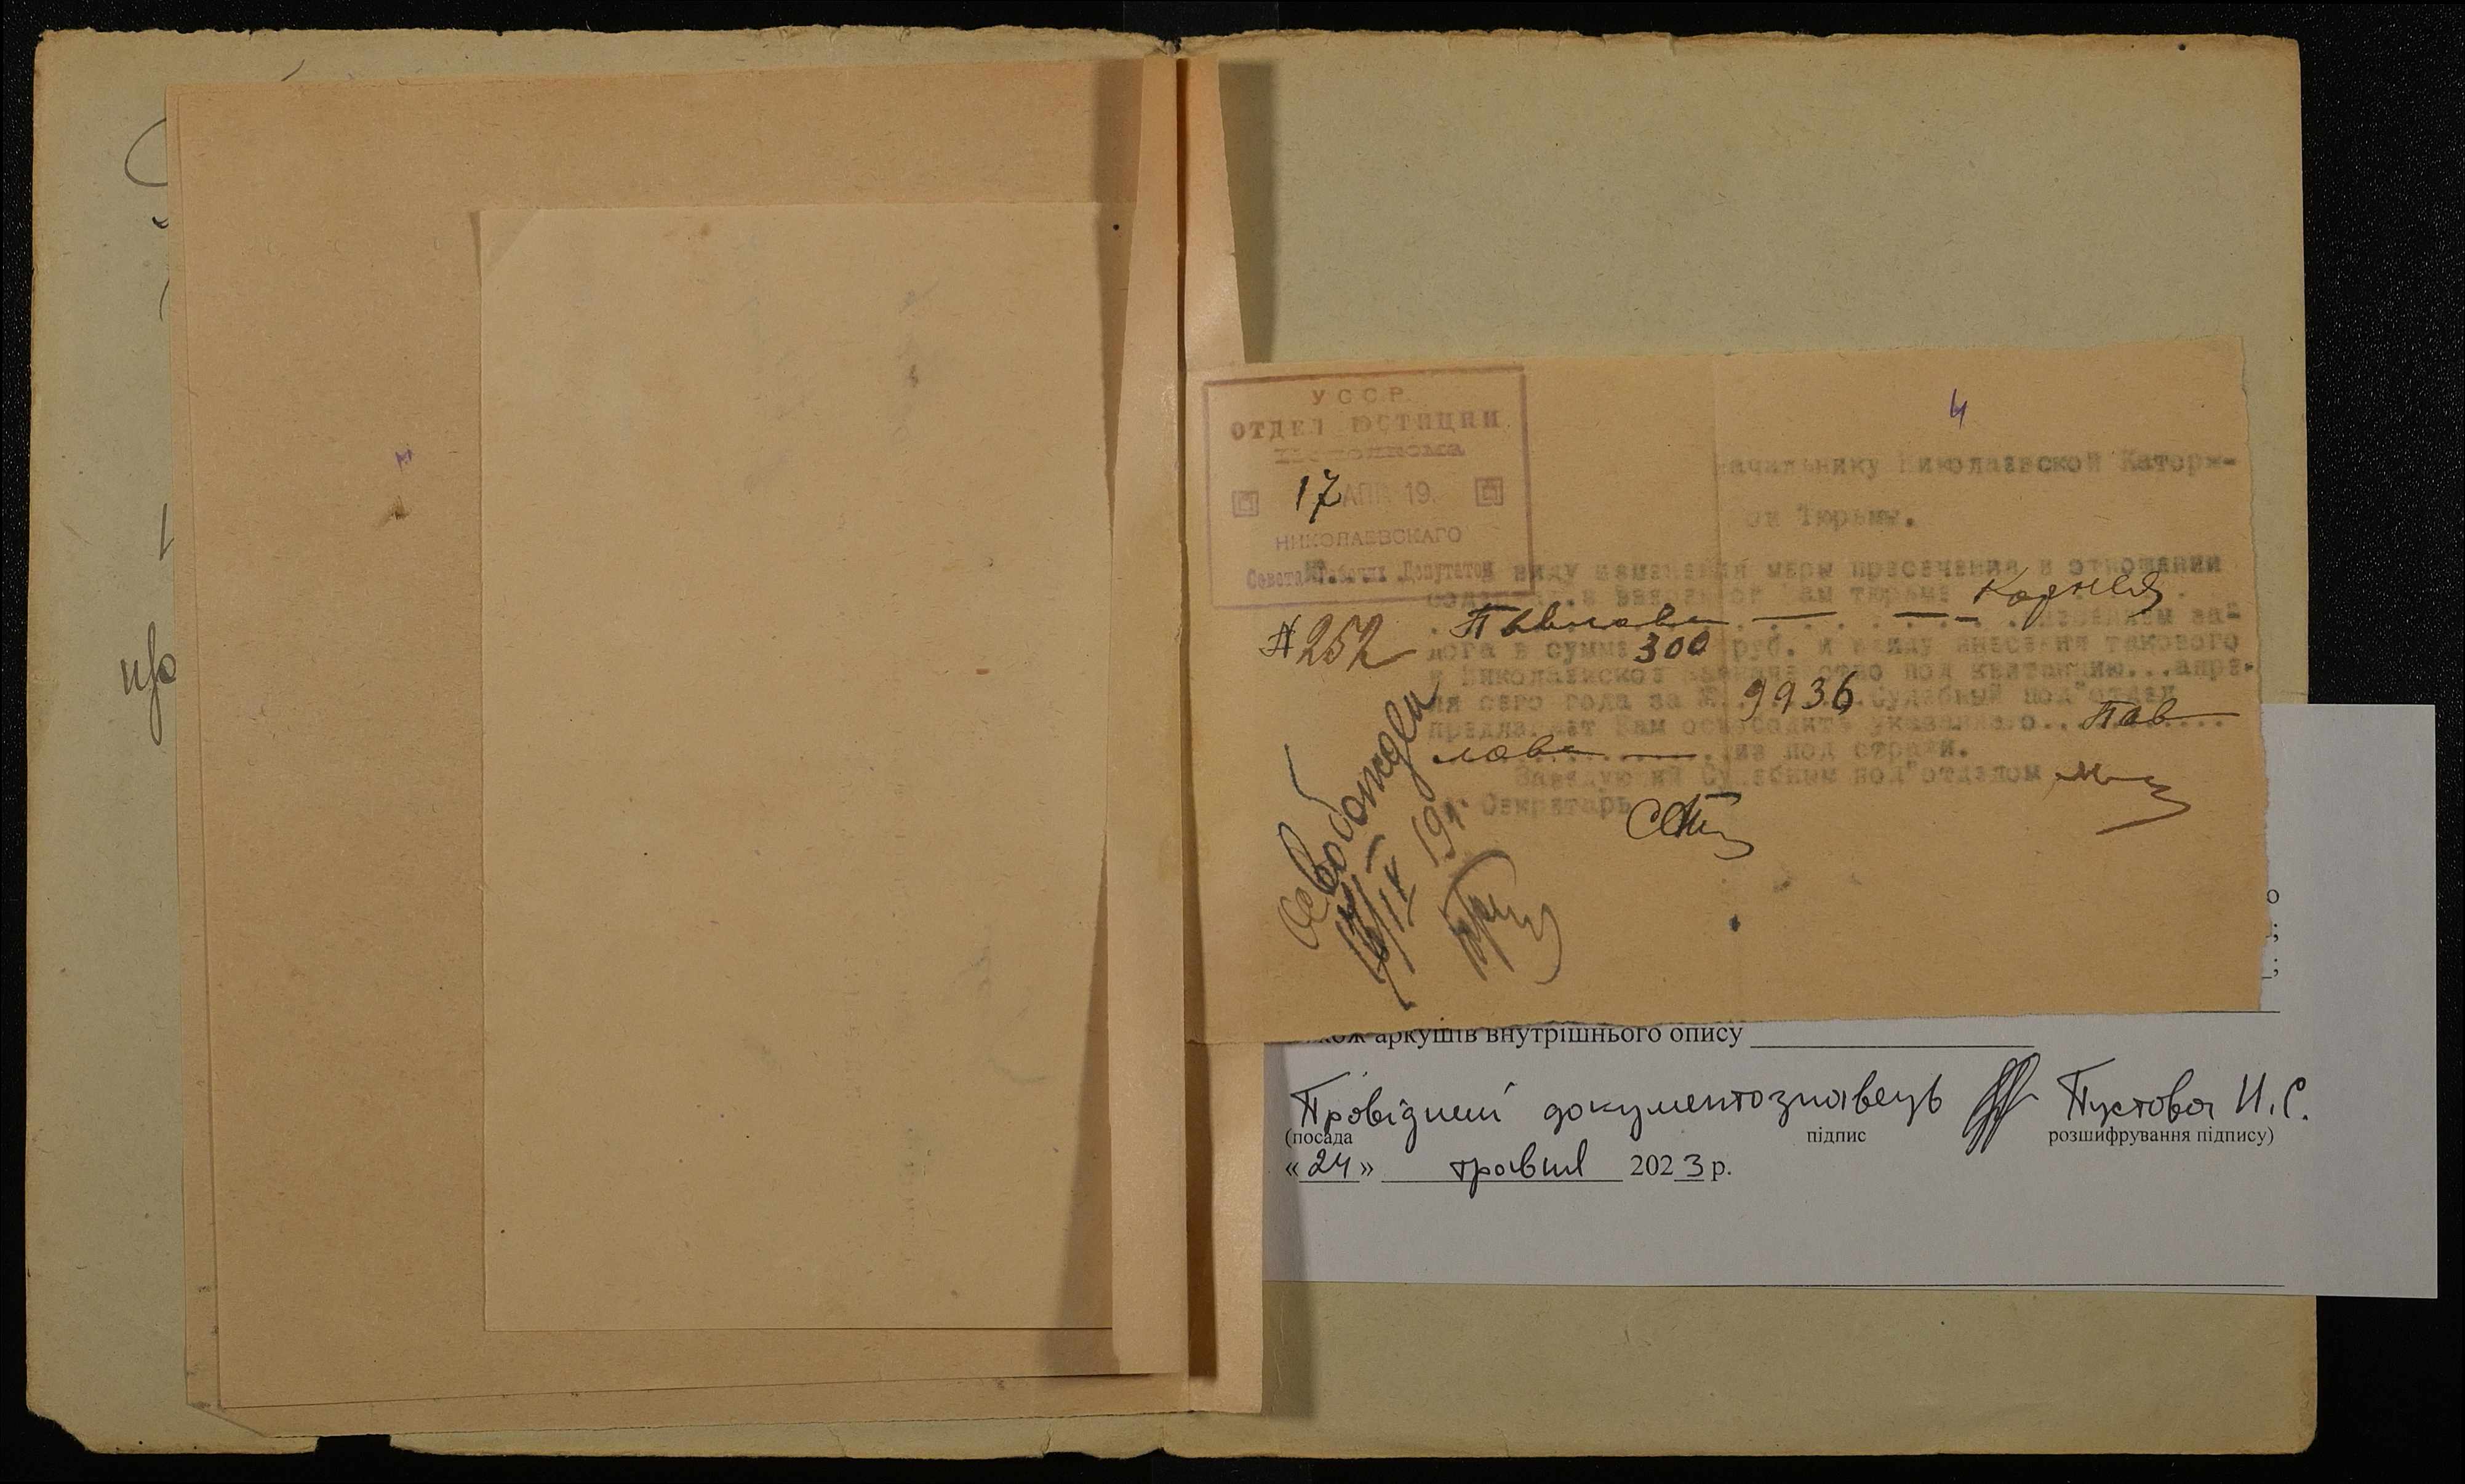 про
4
У С С Р.
ОТДЕЛ ЮСТИЦИИ
Исполкома
17 АПР. 19.
НИКОЛАЕВСКАГО
Совета Рабочих Депутатов
№ 252
Начальнику Николаевской Каторж-
ой Тюрьмы.
В виду изменения меры пресечения в отношении
Вам тюрьме
Павлова Корнея
за-
лога в сумме 300 руб. и ввиду внесения такового
в Николаевское Казначейство под квитанцию...апре-
ля сего года за №. 9936 Судебный под"отдел
предлагает Вам освободить указанного.. Пав
лова из под стражи.
Заведующий Судебным под"отделом
Секретарь
Освобожден
19 г.
о
;
;
кож аркушів внутрішнього опису
Провідний документознавець Пустова И.С.
(посада підпис розшифрування підпису)
« 24 » травня 2023 р.